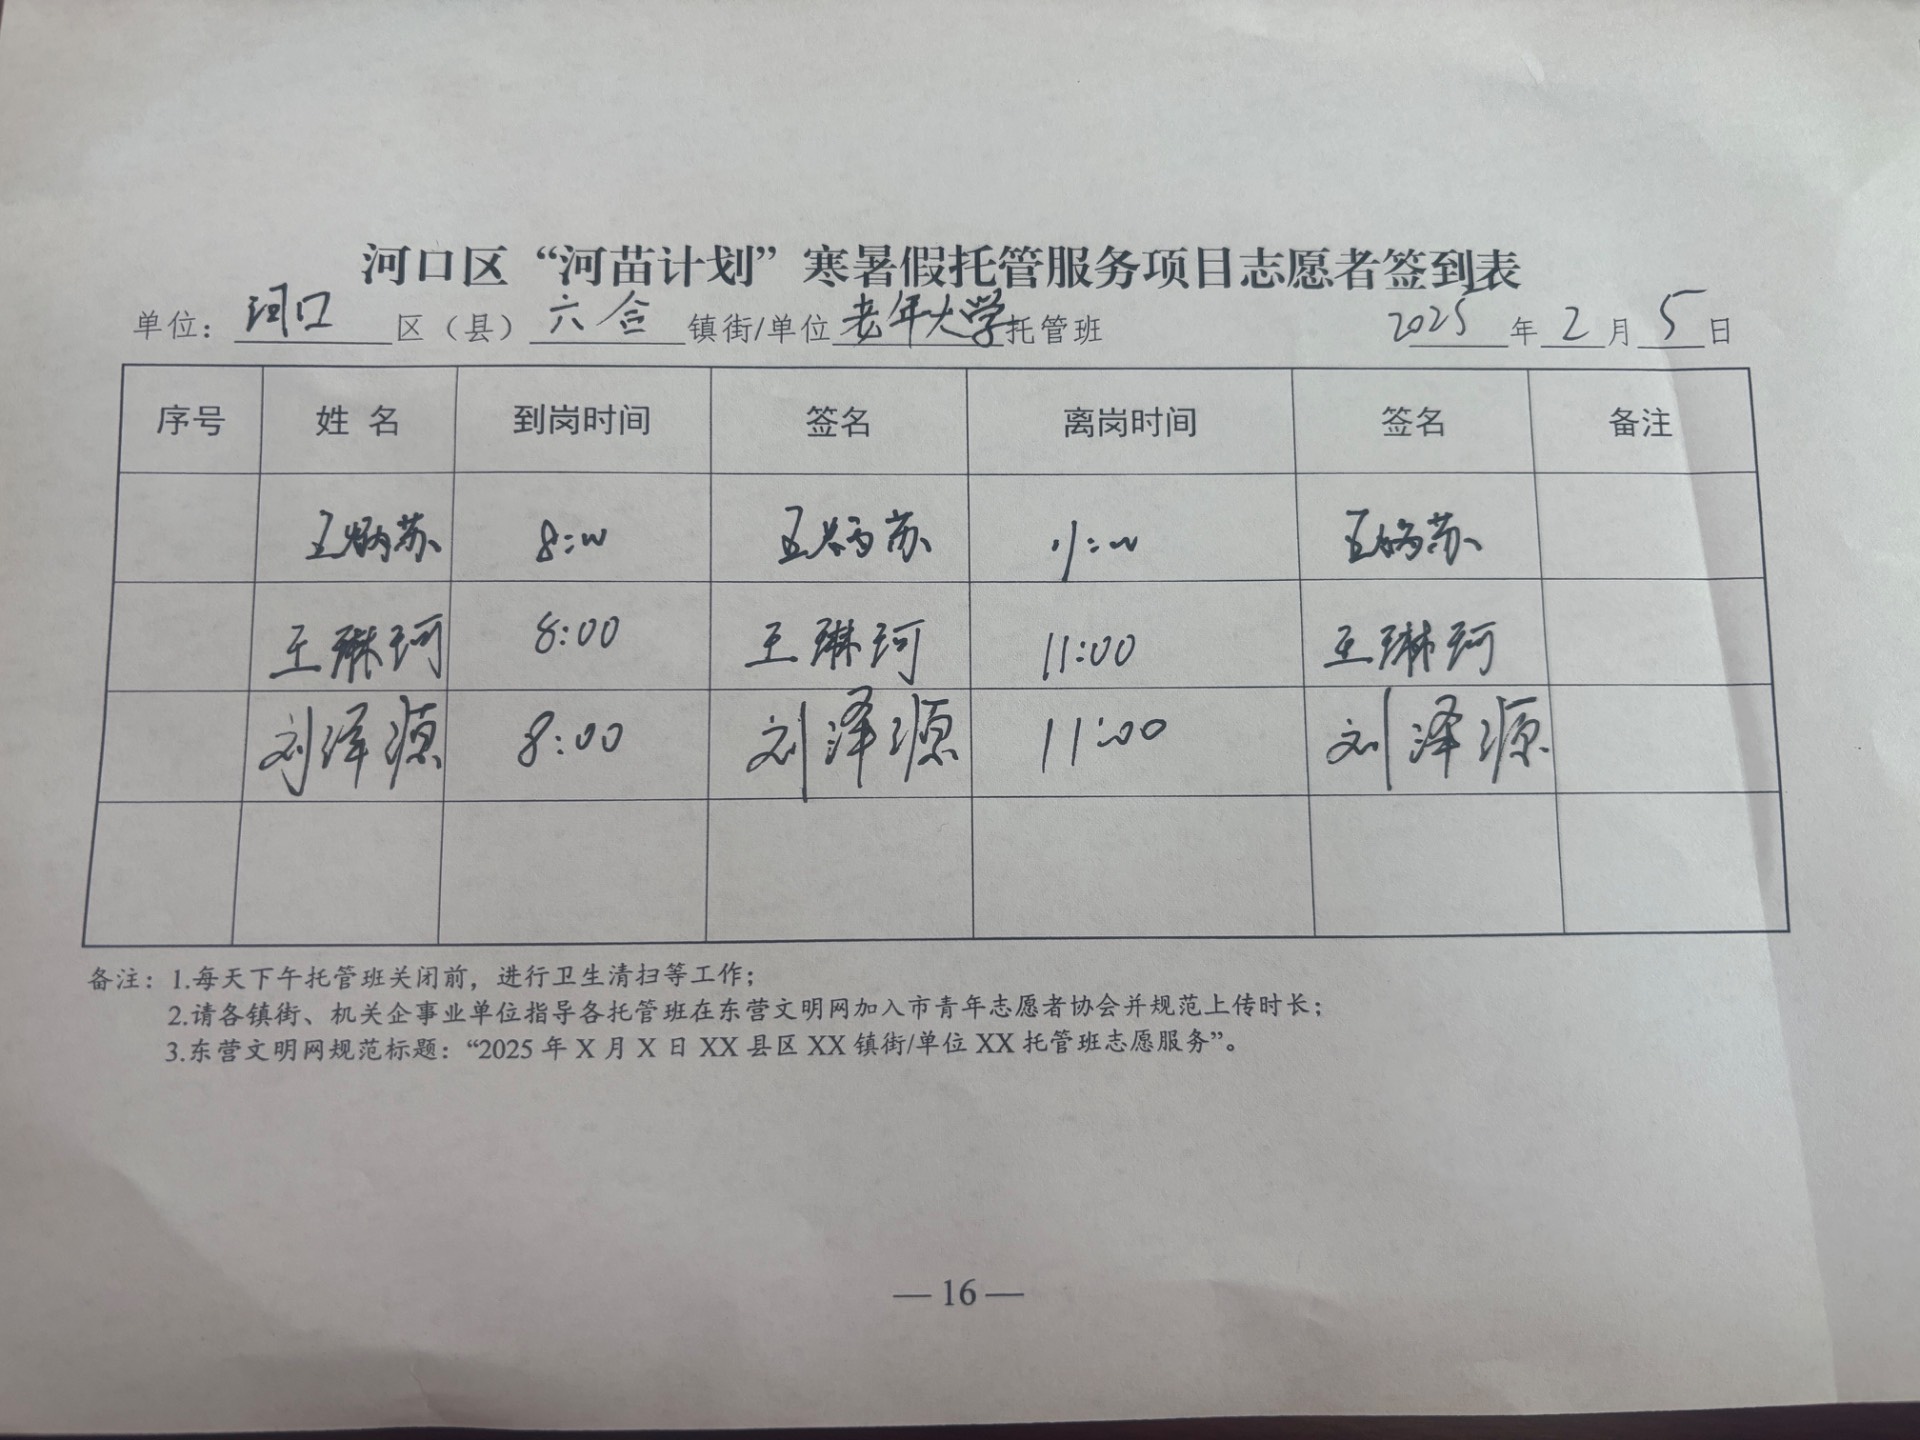 河口区“河苗计划”寒暑假托管服务项目志愿者签到表
单位：河口区（县）六合镇街/单位老年大学托管班 2025年2月5日
序号 姓名 到岗时间 签名 离岗时间 签名 备注
王炳苏 8:00 王炳苏 11:00 王炳苏
王琳珂 8:00 王琳珂 11:00 王琳珂
刘泽源 8:00 刘泽源 11:00 刘泽源
备注：1.每天下午托管班关闭前，进行卫生清扫等工作；
2.请各镇街、机关企事业单位指导各托管班在东营文明网加入市青年志愿者协会并规范上传时长；
3.东营文明网规范标题：“2025 年 X 月 X 日 XX 县区 XX 镇街/单位 XX 托管班志愿服务”。
— 16 —